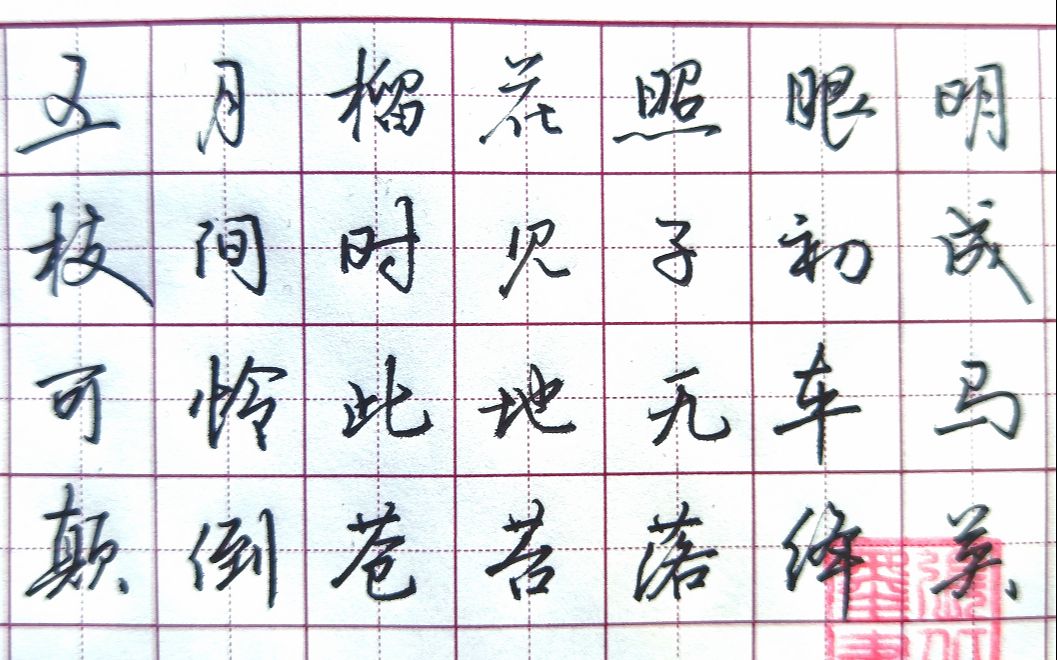 五月榴花照眼明
枝间时见子初成
可怜此地无车马
颠倒苍苔落绛英